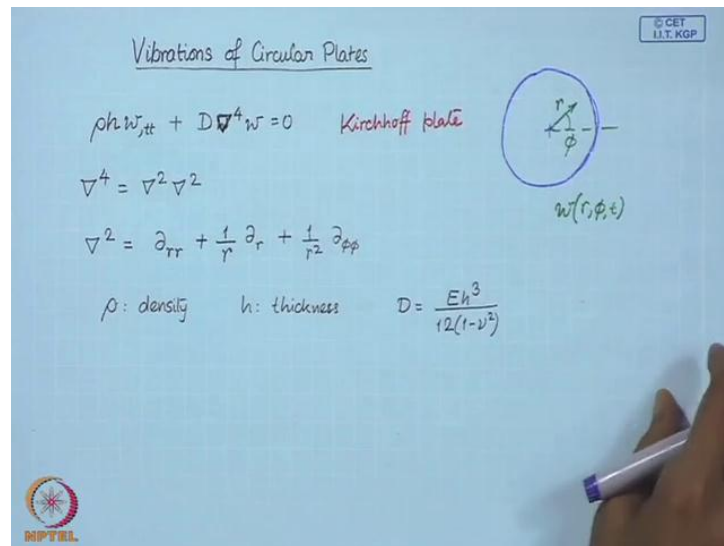 © CET
I.I.T. KGP
Vibrations of Circular Plates
ρhw,tt + D∇⁴w = 0 Kirchhoff plate
r
ϕ
w(r,ϕ,t)
∇⁴ = ∇² ∇²
∇² = ∂rr + 1/r ∂r + 1/r² ∂ϕϕ
ρ: density h: thickness D = Eh³/12(1-ν²)
NPTEL